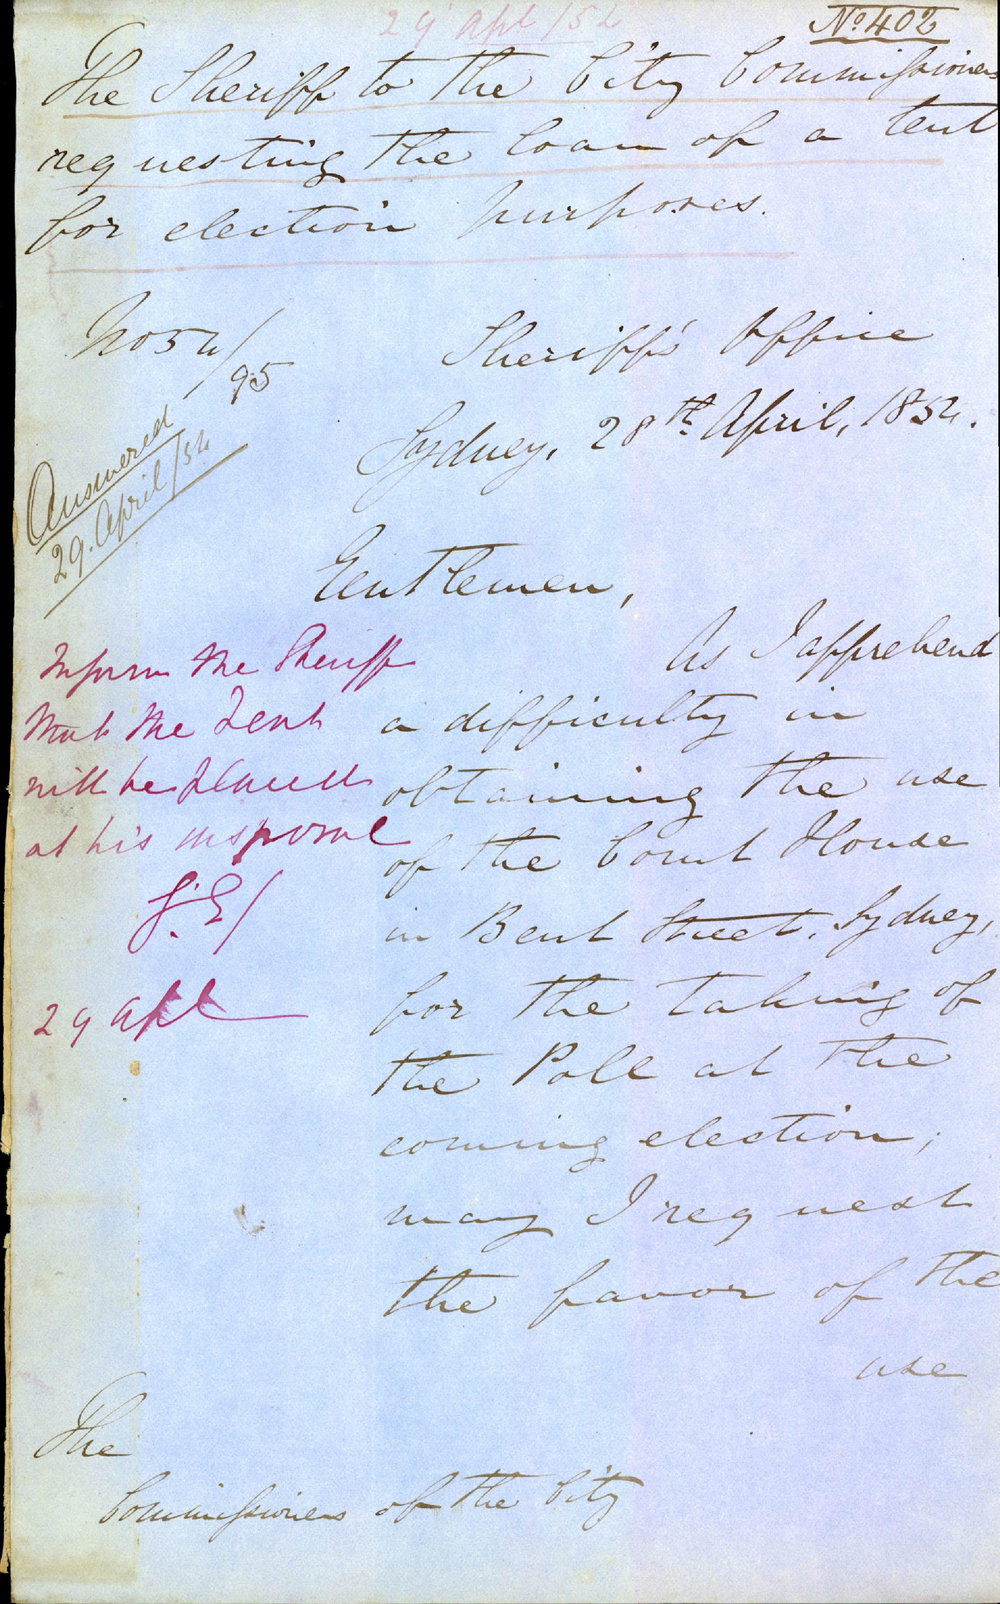 29 Apl /54
No. 402
The Sheriff to the City Commissioners
requesting the loan of a tent
for election purposes.
No 54/95
Sheriff's Office
Sydney, 28th April, 1854.
Answered
29. April/54
Gentlemen,
As I apprehend
a difficulty in
obtaining the use
of the Court House
in Bent Street, Sydney,
for the taking of
the Poll at the
coming election;
may I request
the favor of the
use
Inform the Sheriff
that the Tent
will be placed
at his disposal
G. E/
29 Apl
The
Commissioners of the City